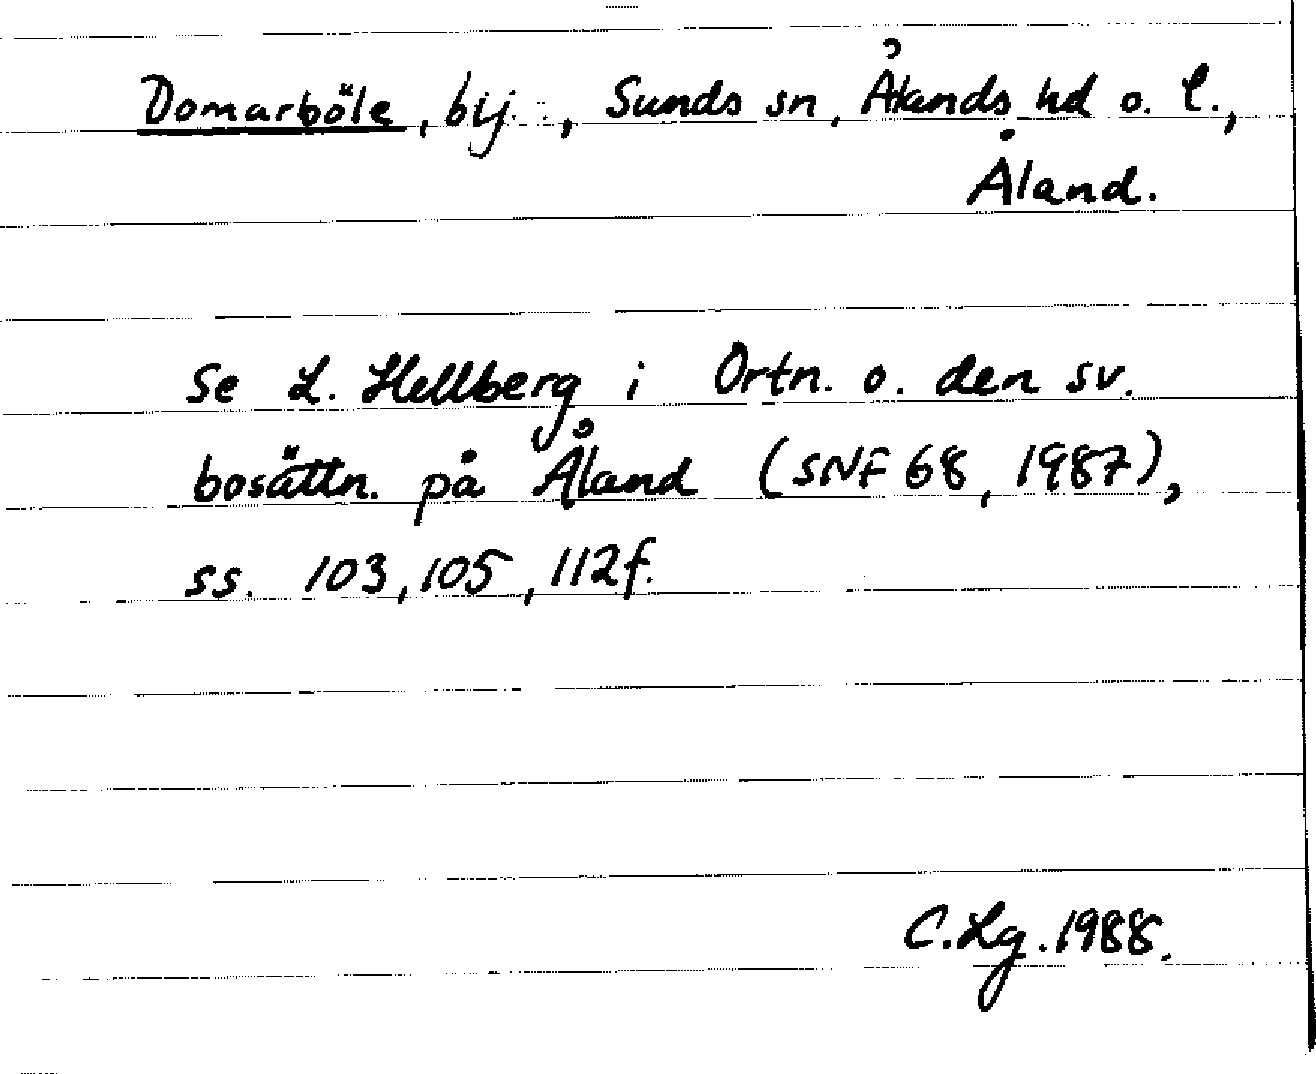 Domarböle, by, Sunds sn, Ålands hd o. l.,
Åland.
Se L. Hellberg i Ortn. o. den sv.
bosättn. på Åland (SNF 68, 1987),
ss. 103, 105, 112f.
C. Lg. 1988.